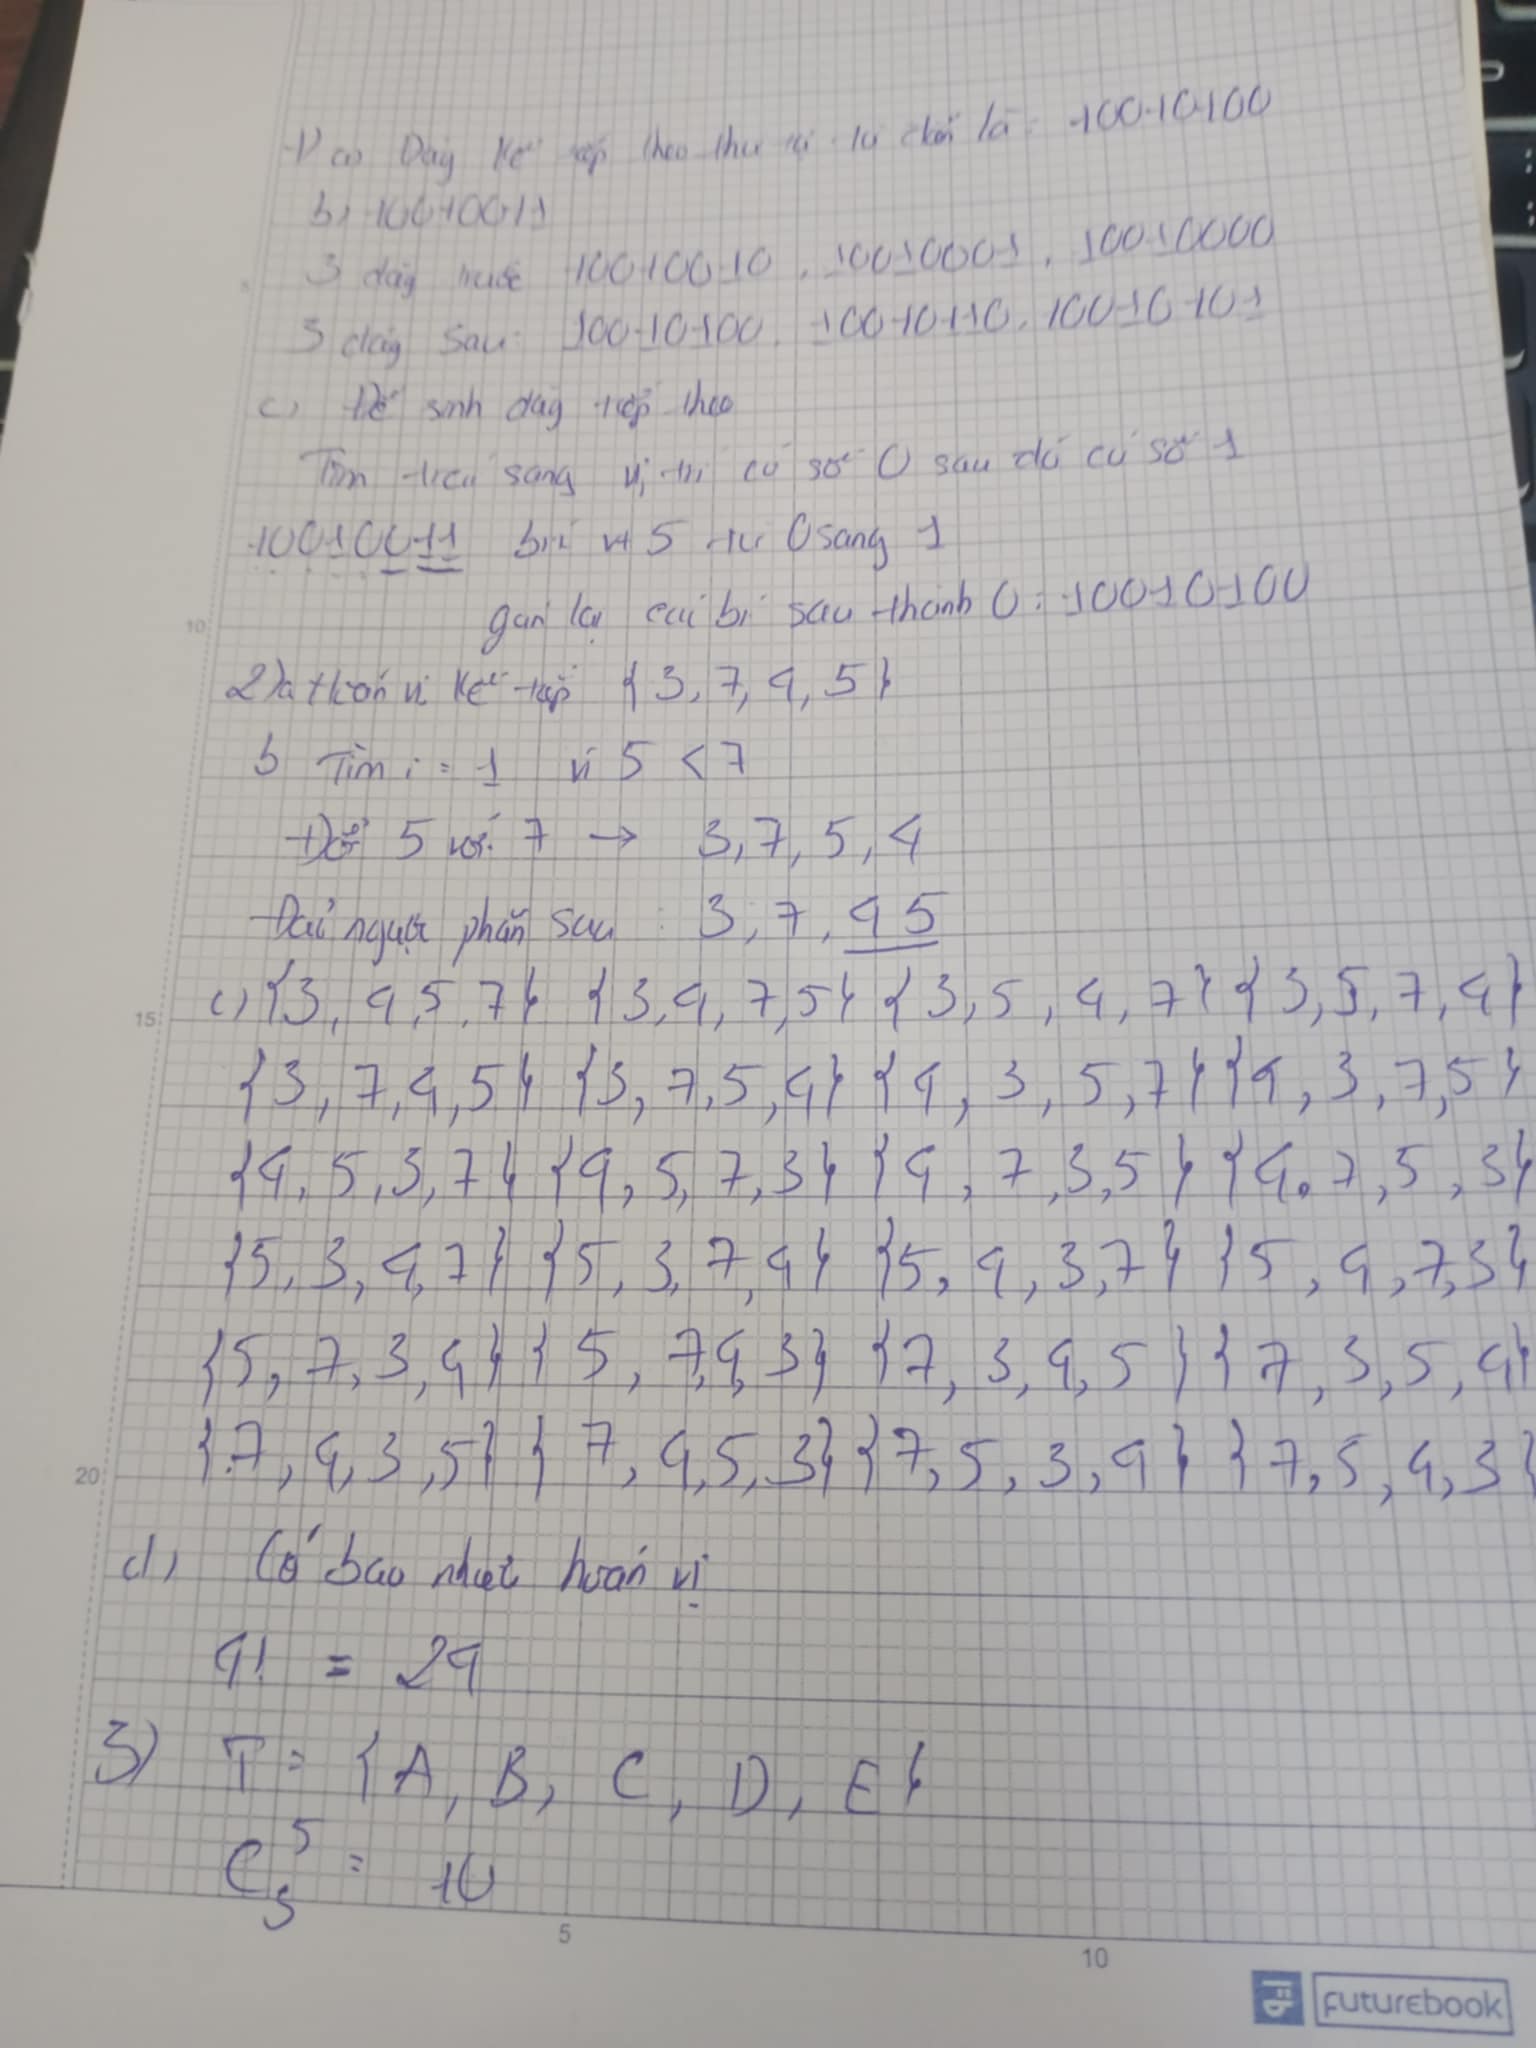 1) a) Dãy kế tiếp theo thứ tự từ điển là: 10010100
b) 10010011
3 dãy trước 10010010, 10010001, 10010000
3 dãy sau: 10010100, 10010110, 10010101
c) Để sinh dãy tiếp theo
Tìm trái sang vị trí có số 0 sau đó có số 1
10010011 bit vt 5 từ 0 sang 1
gán lại các bit sau thành 0: 10010100
2) a Hoán vị kế tiếp {3, 7, 4, 5}
b Tìm i = 1 vì 5 < 7
Đổi 5 với 7 → 3, 7, 5, 4
Đảo ngược phần sau : 3, 7, 4 5
c) {3, 4, 5, 7} {3, 4, 7, 5} {3, 5, 4, 7} {3, 5, 7, 4}
{3, 7, 4, 5} {3, 7, 5, 4} {4, 3, 5, 7} {4, 3, 7, 5}
{4, 5, 3, 7} {4, 5, 7, 3} {4, 7, 3, 5} {4, 7, 5, 3}
{5, 3, 4, 7} {5, 3, 7, 4} {5, 4, 3, 7} {5, 4, 7, 3}
{5, 7, 3, 4} {5, 7, 4, 3} {7, 3, 4, 5} {7, 3, 5, 4}
{7, 4, 3, 5} {7, 4, 5, 3} {7, 5, 3, 4} {7, 5, 4, 3}
d) Có bao nhiêu hoán vị
4! = 24
3) T = {A, B, C, D, E}
C₃⁵ = 10
10
15
20
5
10
FUTUREBOOK